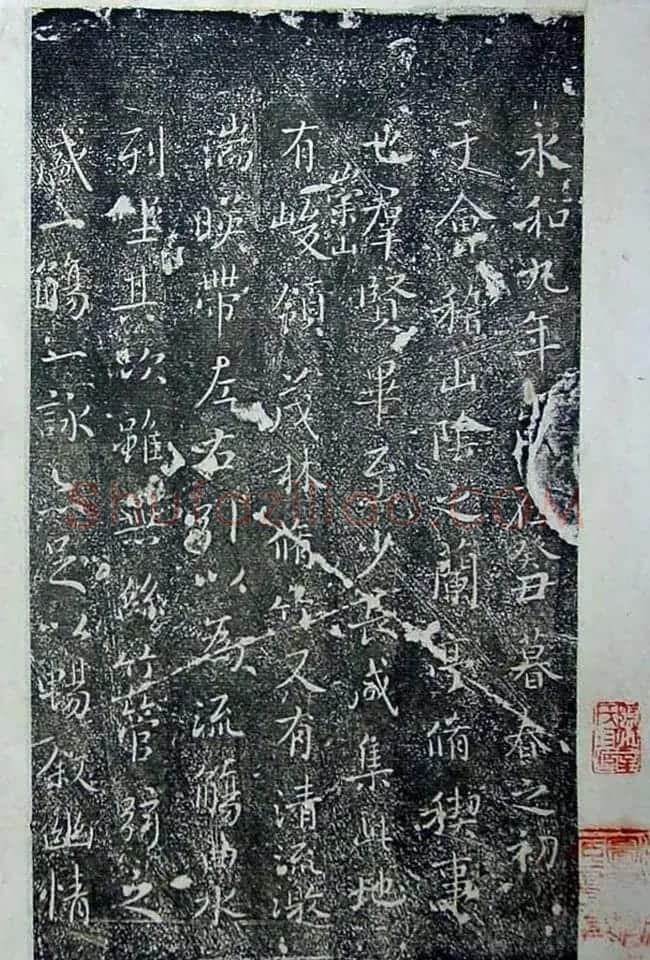 永和九年在癸丑暮春之初
于會稽山陰之蘭亭脩稧事
也羣賢畢至少長咸集此地
崇山
有峻領茂林脩竹又有清流激
湍暎帶左右引以為流觴曲水
列坐其次雖無絲竹管弦之
盛一觴一詠亦足以暢叙幽情
Shufaziliao.com